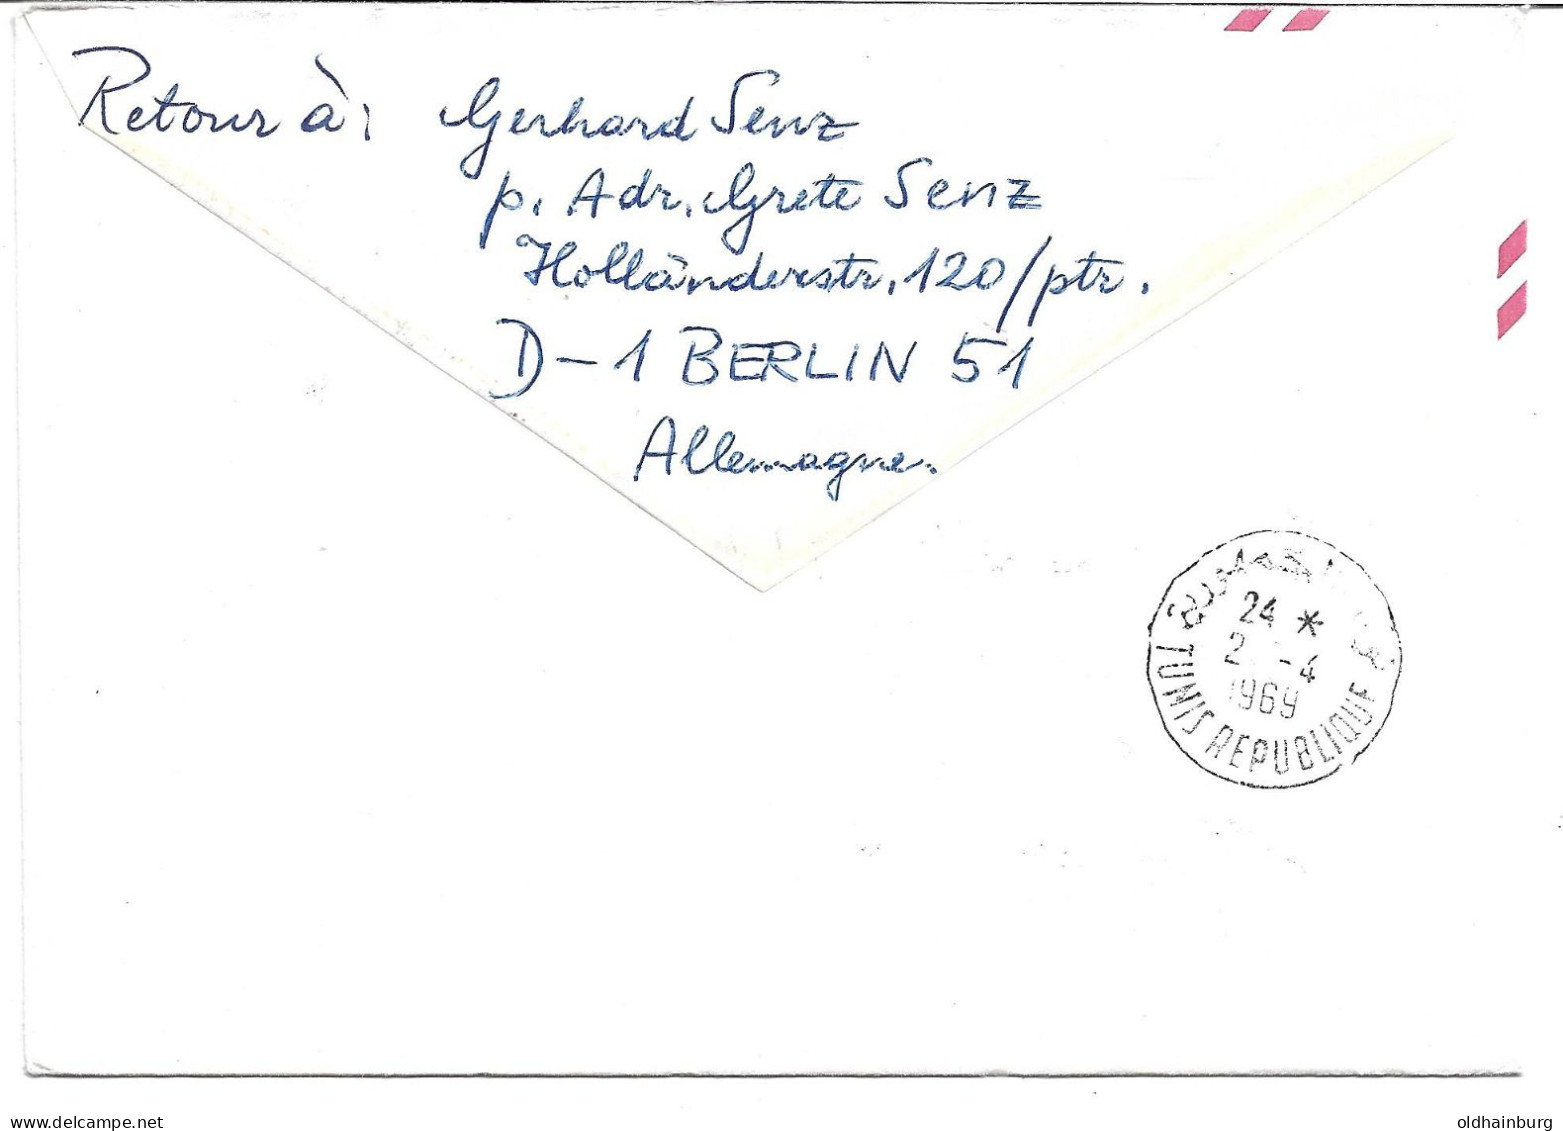 Retour à: Gerhard Senz
p. Adr. Grete Senz
Holländerstr. 120/ptr.
D-1 BERLIN 51
Allemagne.
24 *
-4
1969
TUNIS REPUBLIQUE
delcampe.net
oldhainburg